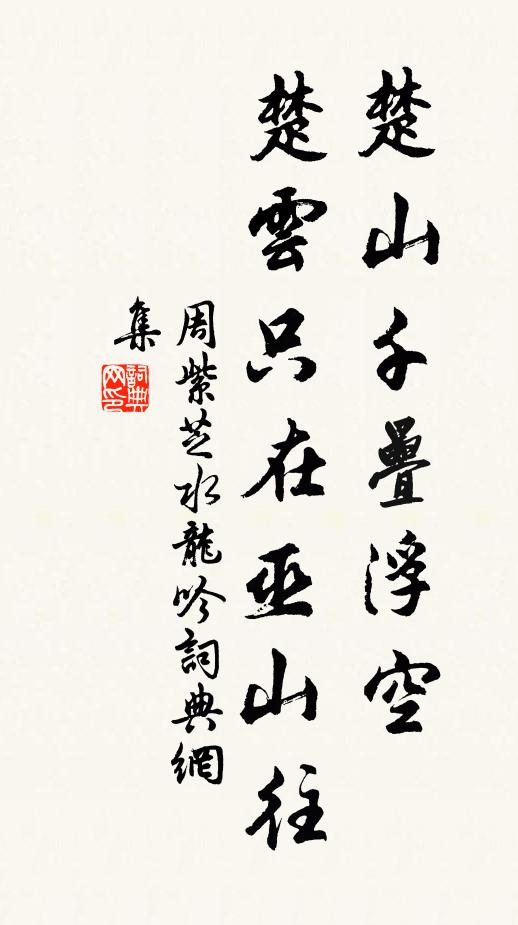 楚山千疊浮空
楚雲只在巫山往
周紫芝水龍吟詞典網
集
詞典
网印